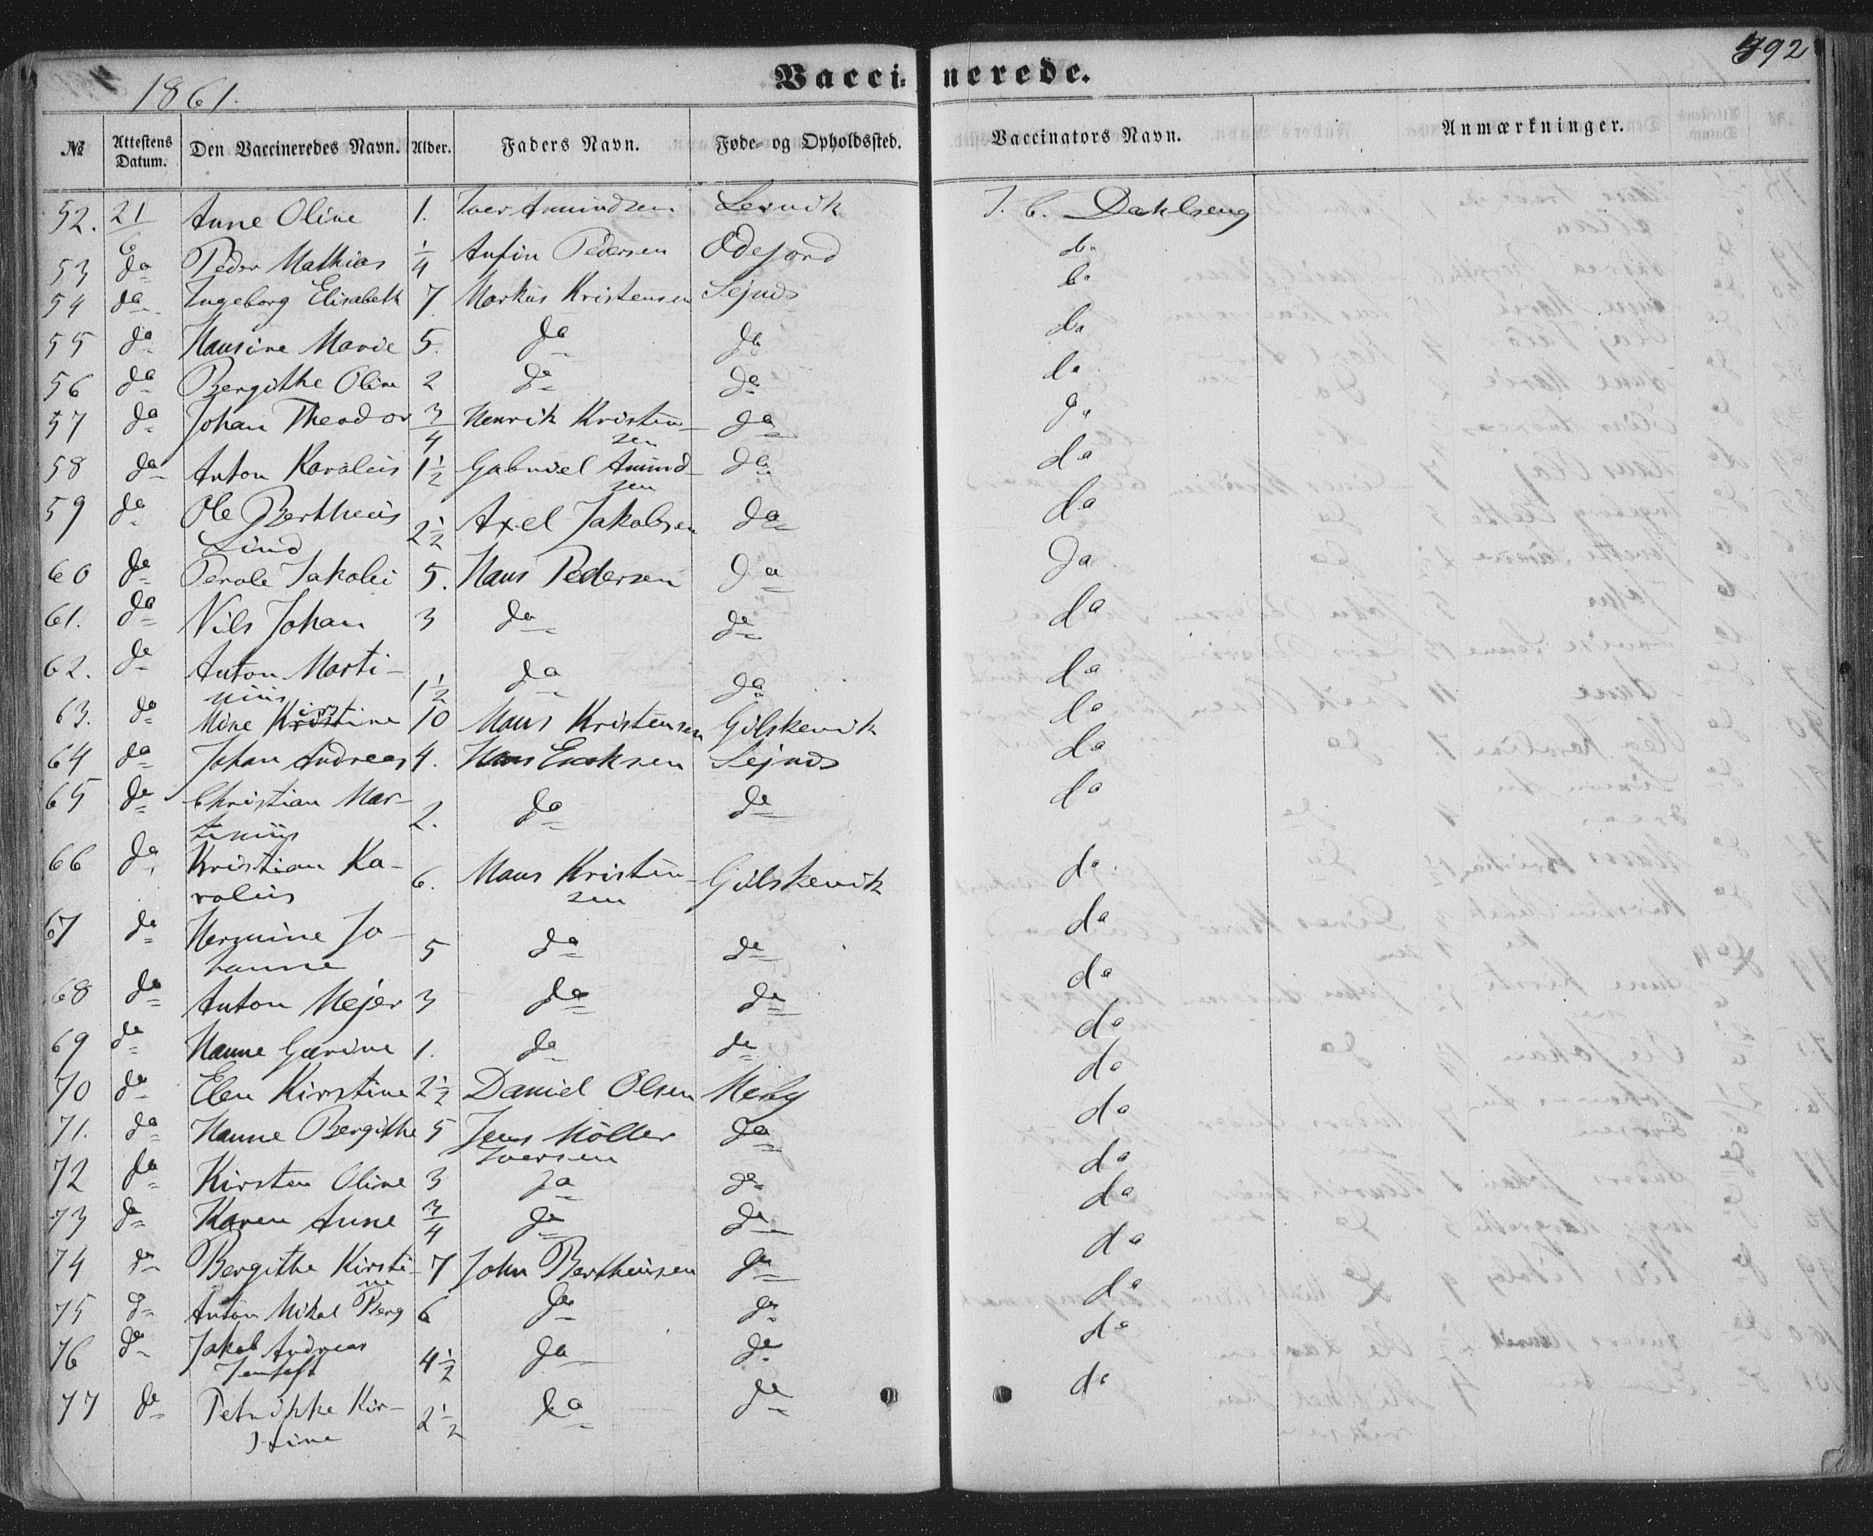 1861.
Vaccinerede.
492
№ Attestens Datum. Den Vaccineredes Navn. Alder. Faders Navn. Føde- og Opholdssted. Vaccinators Navn. Anmærkninger.
52. 21/6 Anne Oline 1. Iver Amundsen Lervik J. C. Dahlseng
53 do Peder Mathias 1/4 Anfin Pedersen Odefjord do
54 do Ingeborg Elisabeth 7. Markus Kristensen Sejnæs do
55 do Hansine Marie 5. do do do
56 do Bergithe Oline 2 do do do
57 do Johan Theodor 3/4 Henrik Kristen-
sen do do
58 do Anton Karolius 1 1/2 Gabriel Amund-
sen do do
59 do Ole Bertheus
Lind 2 1/2 Axel Jakobsen do do
60 do Perole Jakobi 5. Hans Pedersen do do
61. do Nils Johan 3 do do do
62. do Anton Marti-
nius 1 1/2 do do do
63. do Mine Kristine 10 Hans Kristensen Gilskevik do
64 do Johan Andreas 4. Hans Eriksen Sejnæs do
65 do Christian Mar-
tinius 2. do do do
66 do Kristian Ka-
rolius 6. Hans Kristen-
sen Gilskevik do
67 do Hermine Jo-
hanne 5 do do do
68 do Anton Mejer 3 do do do
69 do Hanne Gurine 1. do do do
70 do Elen Kirstine 2 1/2 Daniel Olsen Meby do
71. do Hanne Bergithe 5 Jens Möller
Iversen do do
72 do Kirsten Oline 3 do do do
73 do Karen Anne 3/4 do do do
74 do Bergithe Kirsti-
ne 7 John Bertheusen do do
75 do Anton Mikal Berg 6 do do do
76 do Jakob Andreas
Jentoft 4 1/2 do do do
77 do Petrikke Kir-
stine 2 1/2 do do do